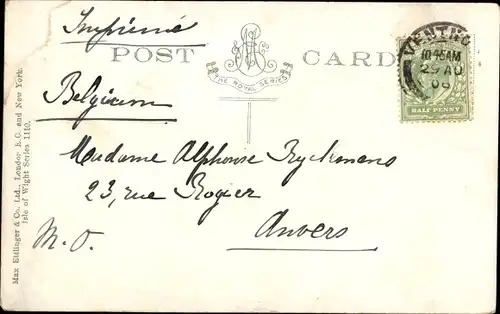 Imprimé
POST CARD
THE ROYAL SERIES
VENTNO
10.45AM
AU
06
HALF PENNY
Belgium
Madame Alphonse Ryckmans
23, rue Rogier
Anvers
M. O.
Max Ettlinger & Co. Ltd., London E.C. and New York.
Isle of Wight Series 1110.